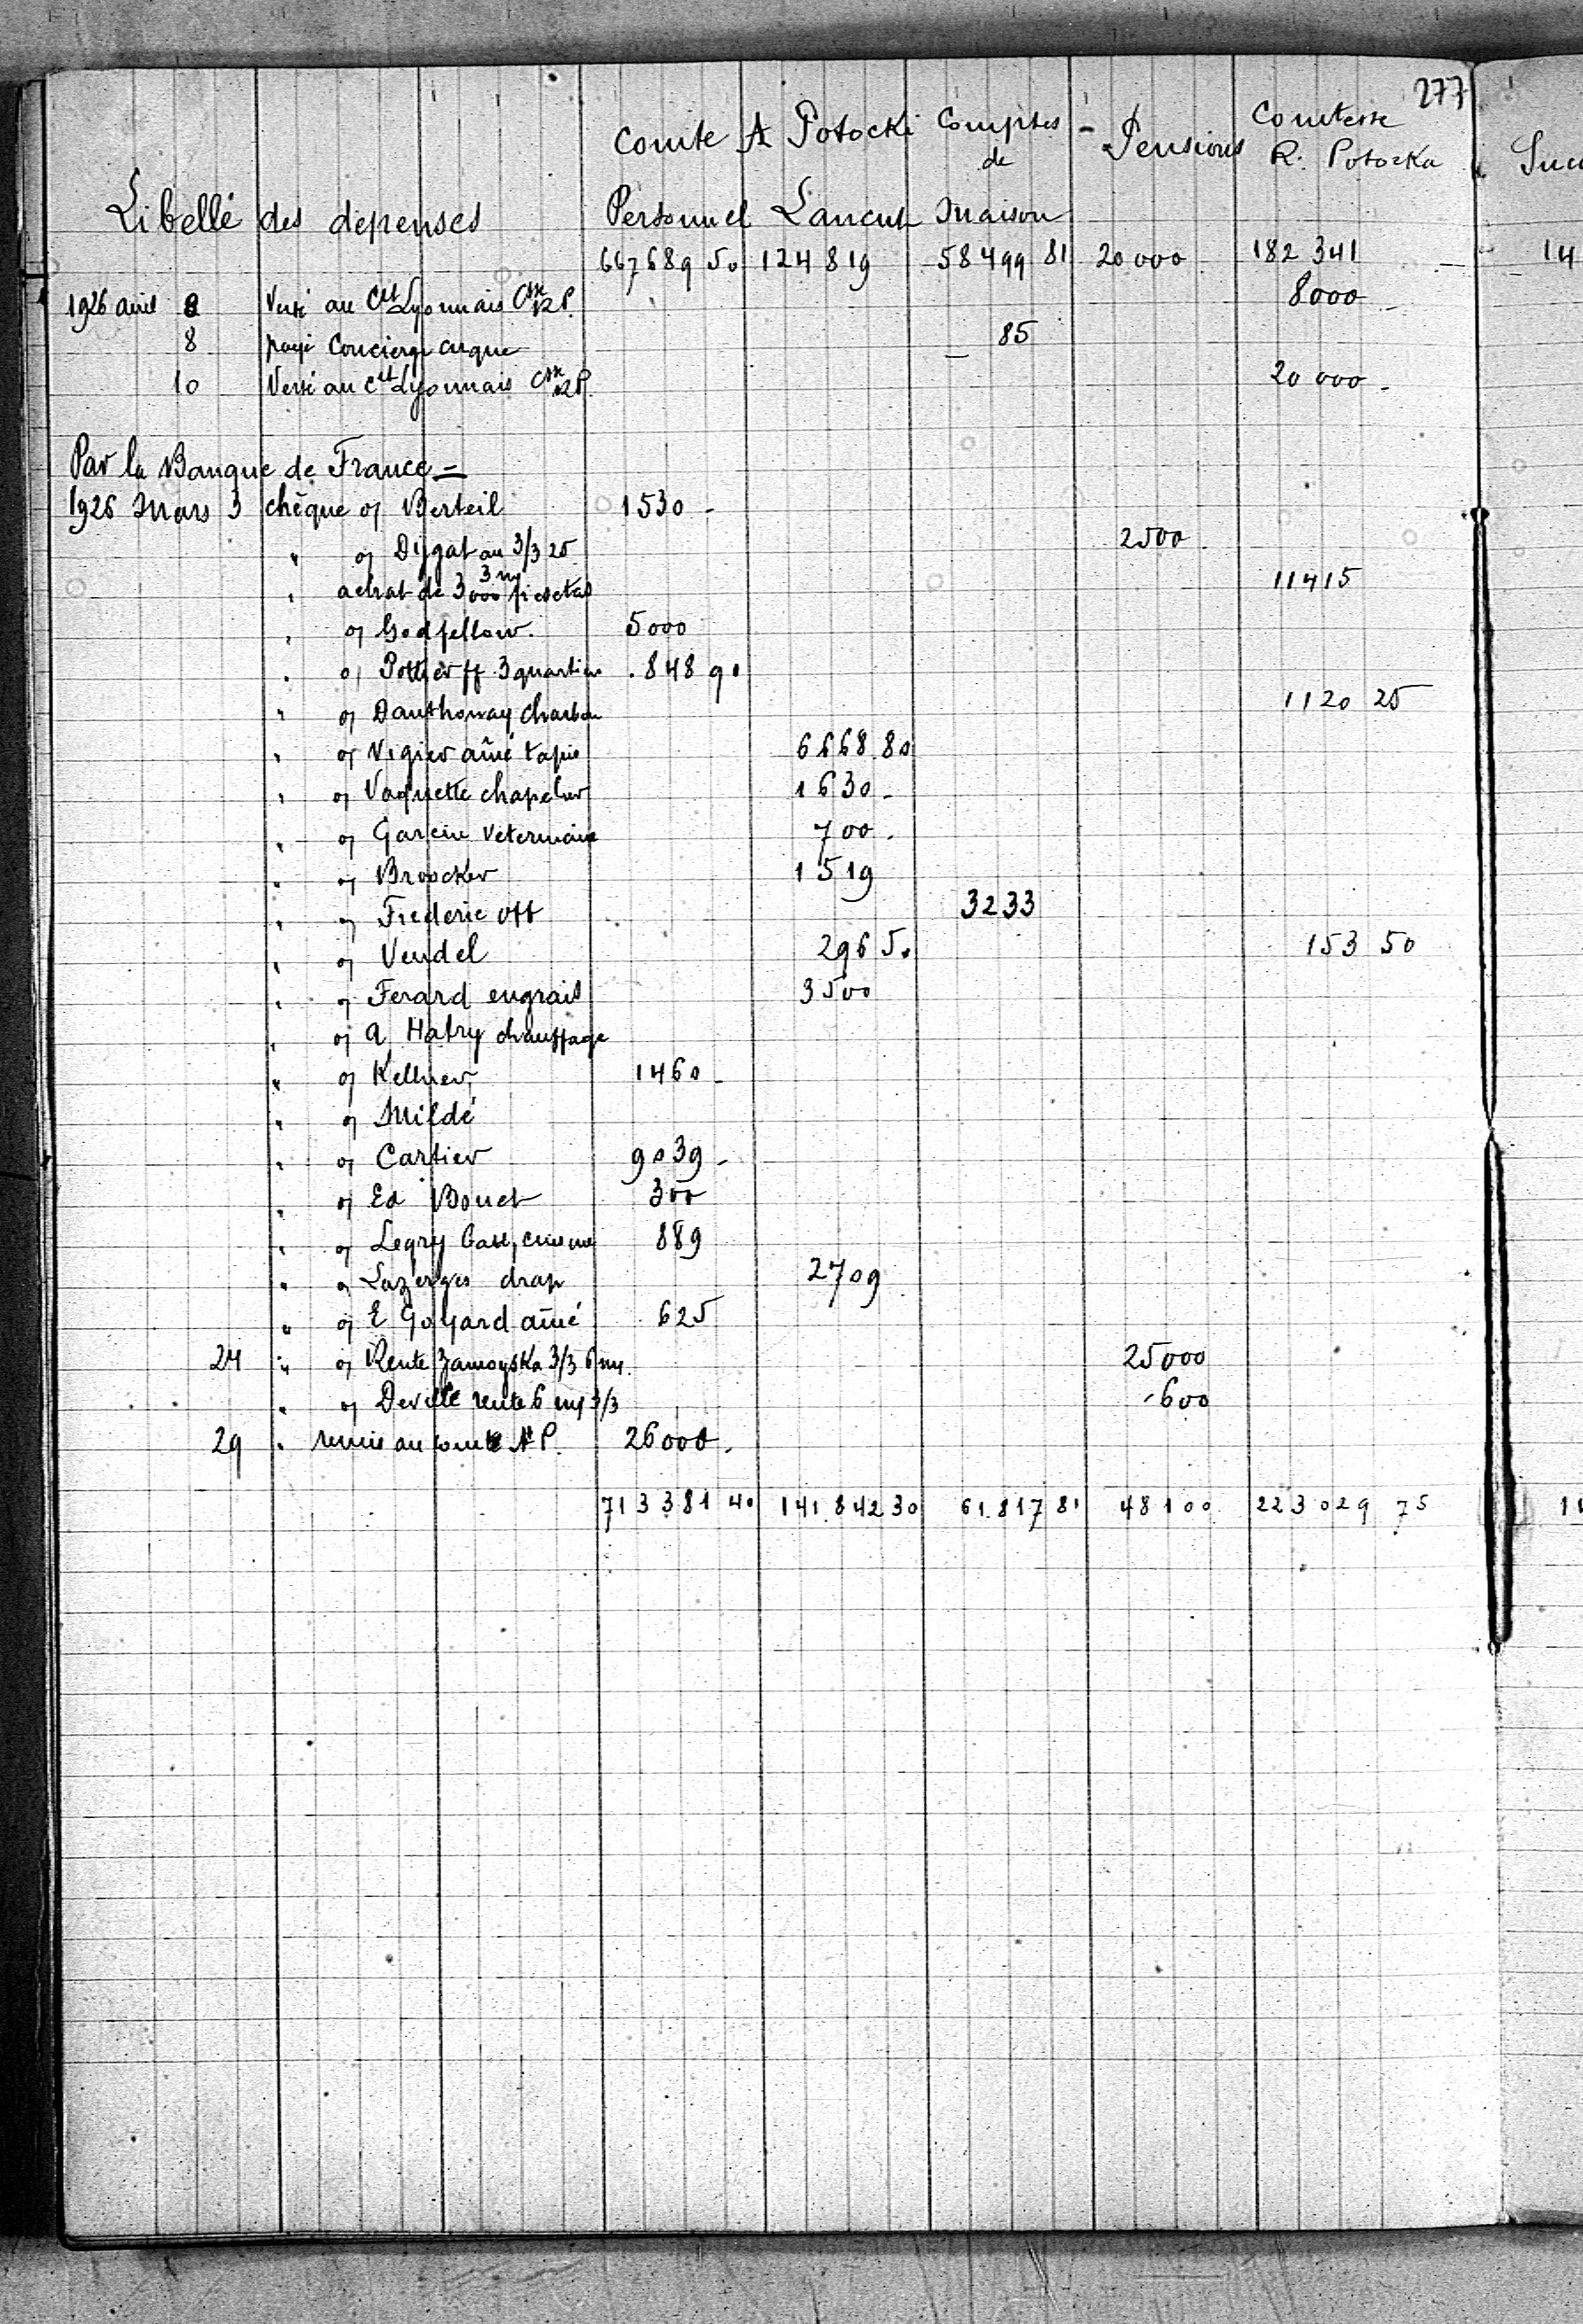 277
Comte A Potocki Comptes de - Pensions Comtesse R. Potocka Succ
Libellé des depenses Personnel Lancut Maison
667689 50 124819 58499 81 20000 182 341 14
1926 avril 8 Versé au Cdt Lyonnais Ctsse R P. 8000
8 payé Concierge cirque 85
10 Versé au Cdt Lyonnais Ctsse R P. 20 000 -
Par la Banque de France =
1926 Mars 3 chèque o/ Berteil 1530 -
" o/ Dygat au 3/3 25 2500
" achat de 3000 pesetas 11415
" o/ Godfellow. 5000
" o/ Pottier ff 3 quartiers 848 90
" o/ Danthonay charbon 1120 25
" o/ Vigier aîné tapis 6668.80
" o/ Vaquette chapelier 1630 -
" o/ Garcin Veterinaire 700.
" o/ Broocker 1519
" o/ Frederic Ott 3233
" o/ Vendel 296 50 153 50
" o/ Ferard engrais 3500
" o/ A, Hatry chauffage
" o/ Kellner, 1460 -
" o/ Mildé
" o/ Cartier 9039 -
" o/ Ed Bouet 300
" o/ Legry 889
" o/ Lazerges drap 2709
" o/ E Goyard aîné 625
24 " o/ Rente Zamoyska 3/3 6 m/ 25000
" o/ Deville rente 6 m/ 3/3 600
29 " remis au comte A P. 26000.
713 381 40 141.842 30 61.817 81 48100 223 029 75